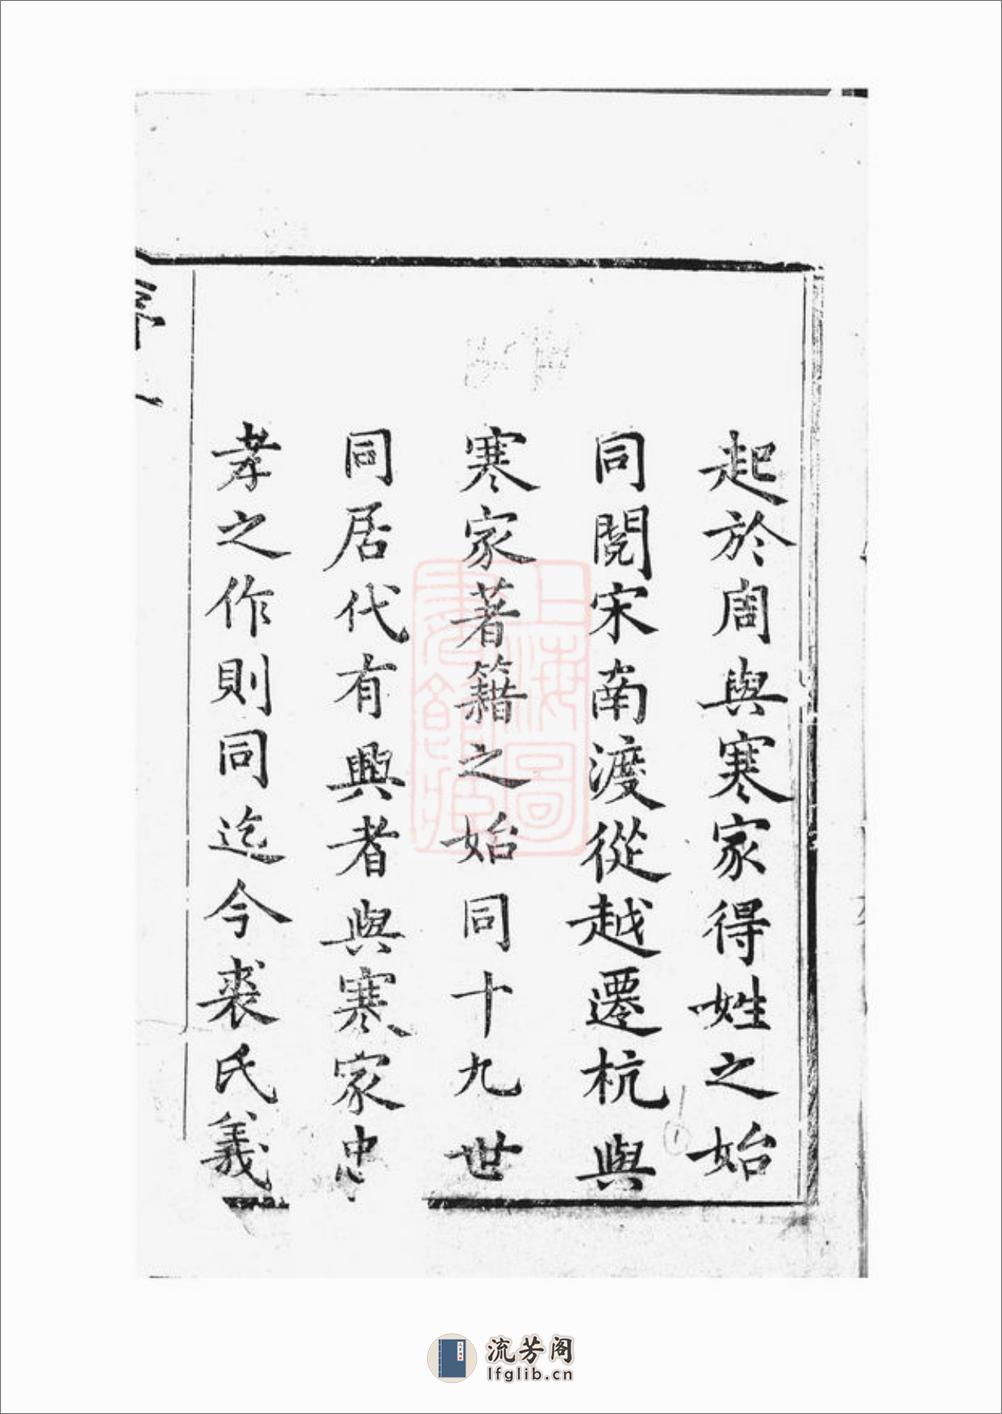 起於周與寒家得姓之始
同閱宋南渡從越遷杭與
寒家著籍之始同十九世
同居代有興者與寒家忠
孝之作則同迄今裘氏義
上海圖書館藏
流芳阁
lfglib.cn